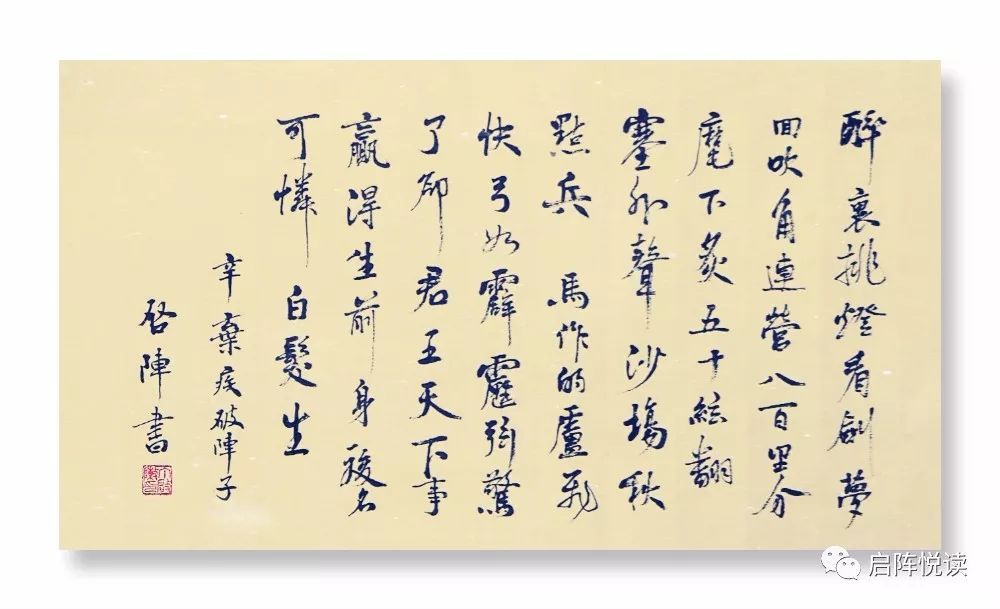 醉裏挑燈看劍夢
回吹角連營八百里分
麾下炙五十絃翻
塞外聲沙場秋
點兵 馬作的盧飛
快弓如霹靂弦驚
了卻君王天下事
贏得生前身後名
可憐白髮生
辛棄疾破陣子
啓陣書
启阵悦读